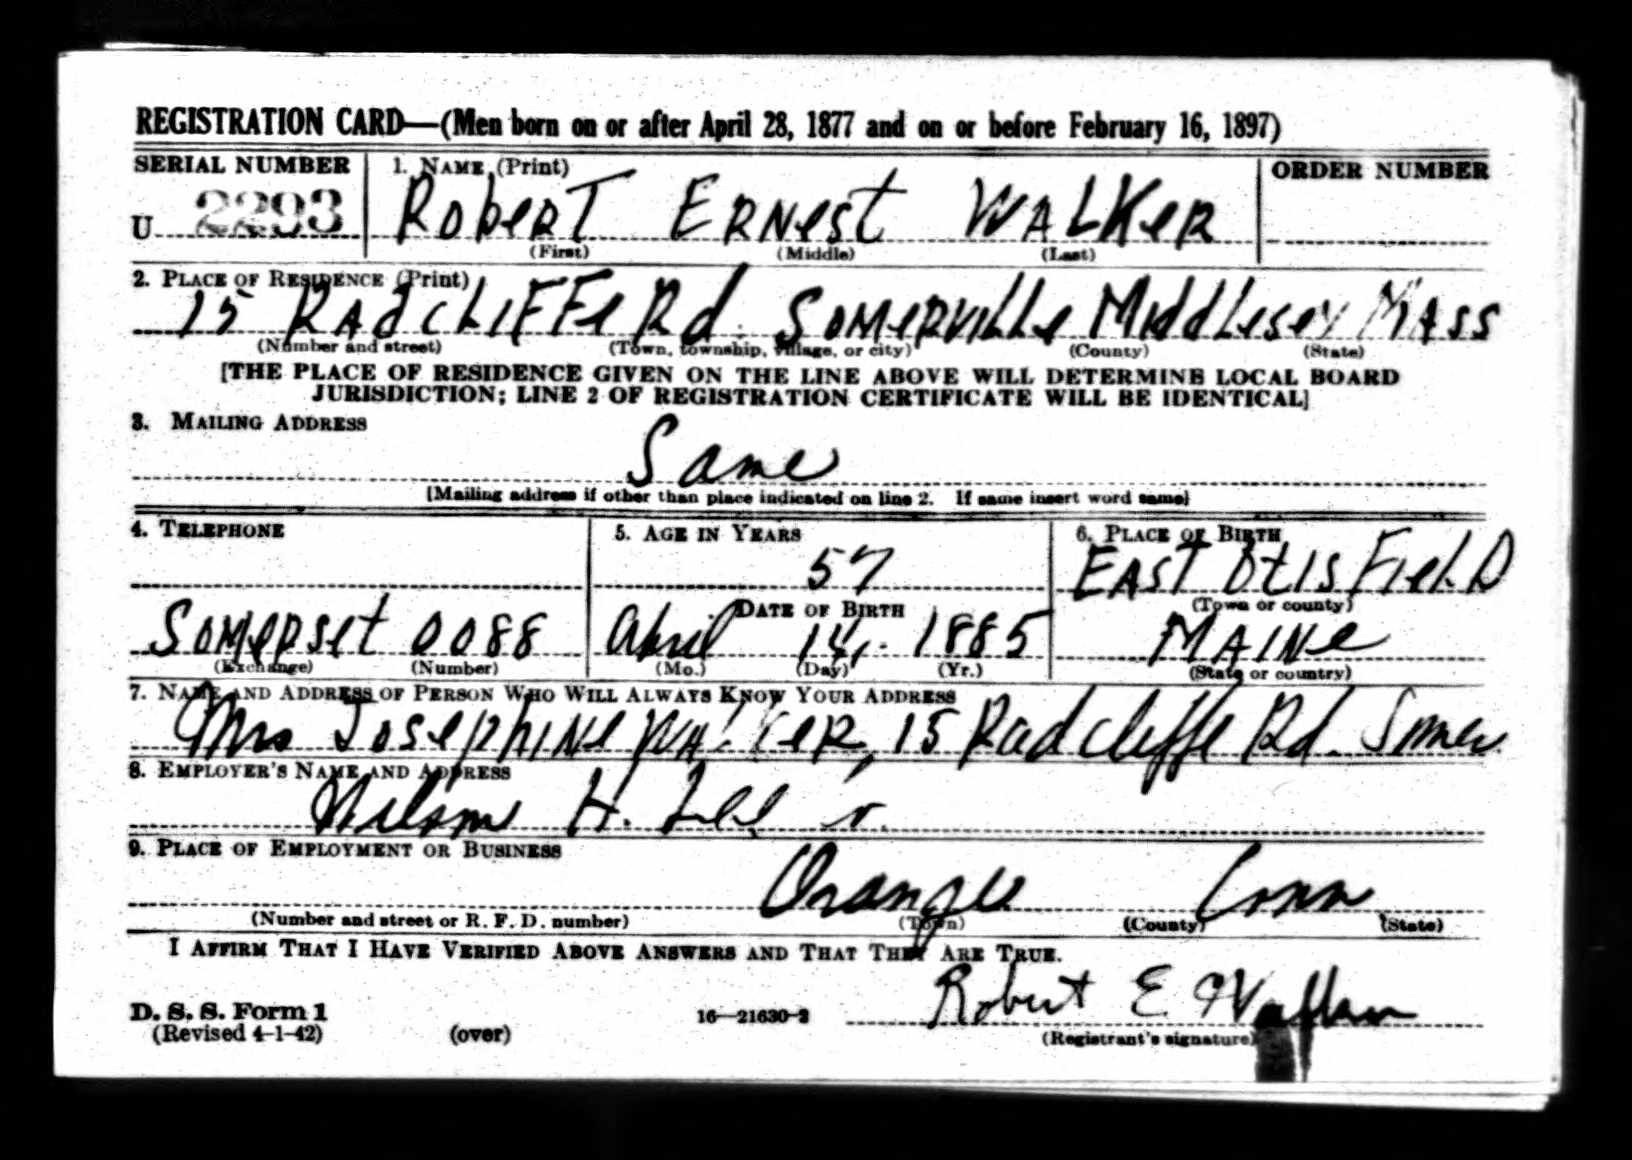 REGISTRATION CARD—(Men born on or after April 28, 1877 and on or before February 16, 1897)
SERIAL NUMBER 1. NAME (Print) ORDER NUMBER
U 2293 ROBERT ERNEST WALKER
(First) (Middle) (Last)
2. PLACE OF RESIDENCE (Print)
15 RADCLIFFE Rd. SOMERVILLE MIDDLESEX MASS
(Number and street) (Town, township, village, or city) (County) (State)
[THE PLACE OF RESIDENCE GIVEN ON THE LINE ABOVE WILL DETERMINE LOCAL BOARD
JURISDICTION; LINE 2 OF REGISTRATION CERTIFICATE WILL BE IDENTICAL]
3. MAILING ADDRESS
Same
[Mailing address if other than place indicated on line 2. If same insert word same]
4. TELEPHONE 5. AGE IN YEARS 6. PLACE OF BIRTH
57 EAST OTISFIELD
DATE OF BIRTH (Town or county)
SOMERSET 0088 April 14, 1885 MAINE
(Exchange) (Number) (Mo.) (Day) (Yr.) (State or country)
7. NAME AND ADDRESS OF PERSON WHO WILL ALWAYS KNOW YOUR ADDRESS
Mrs JOSEPHINE WALKER, 15 Radcliffe Rd. Somer
8. EMPLOYER'S NAME AND ADDRESS
Wilson H. Lee
9. PLACE OF EMPLOYMENT OR BUSINESS
Orange Conn
(Number and street or R. F. D. number) (Town) (County) (State)
I AFFIRM THAT I HAVE VERIFIED ABOVE ANSWERS AND THAT THEY ARE TRUE.
Robert E. Walker
D. S. S. Form 1
(Revised 4-1-42) (over) 16—21630-2 (Registrant's signature)